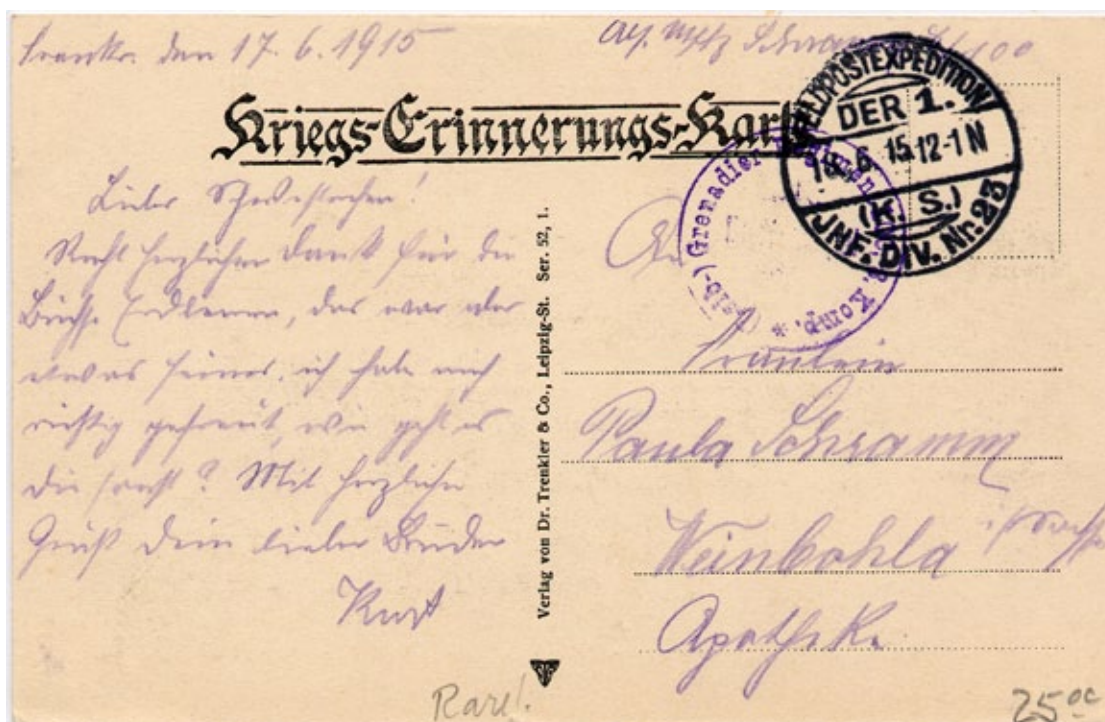 Frankr. den 17.6.1915
Abs. Schramm 100
Kriegs-Erinnerungs-Karte
FELDPOSTEXPEDITION
DER 1.
18. 6. 15. 12-1 N
(K. S.)
JNF. DIV. Nr. 23
(Leib-) Grenadier Regiment Komp. *
Liebes Schwesterchen!
Recht herzlichen Dank für die
Büchse Erdbeeren, das war aber
etwas feines, ich habe mich
richtig gefreut, wie geht es
Dir sonst? Mit herzlichen
Gruß Dein lieber Bruder
Kurt
Verlag von Dr. Trenkler & Co., Leipzig-St. Ser. 52, 1.
An
Fräulein
Paula Schramm
Weinböhla i/Sachs.
Apotheke
Rare!
25 oc